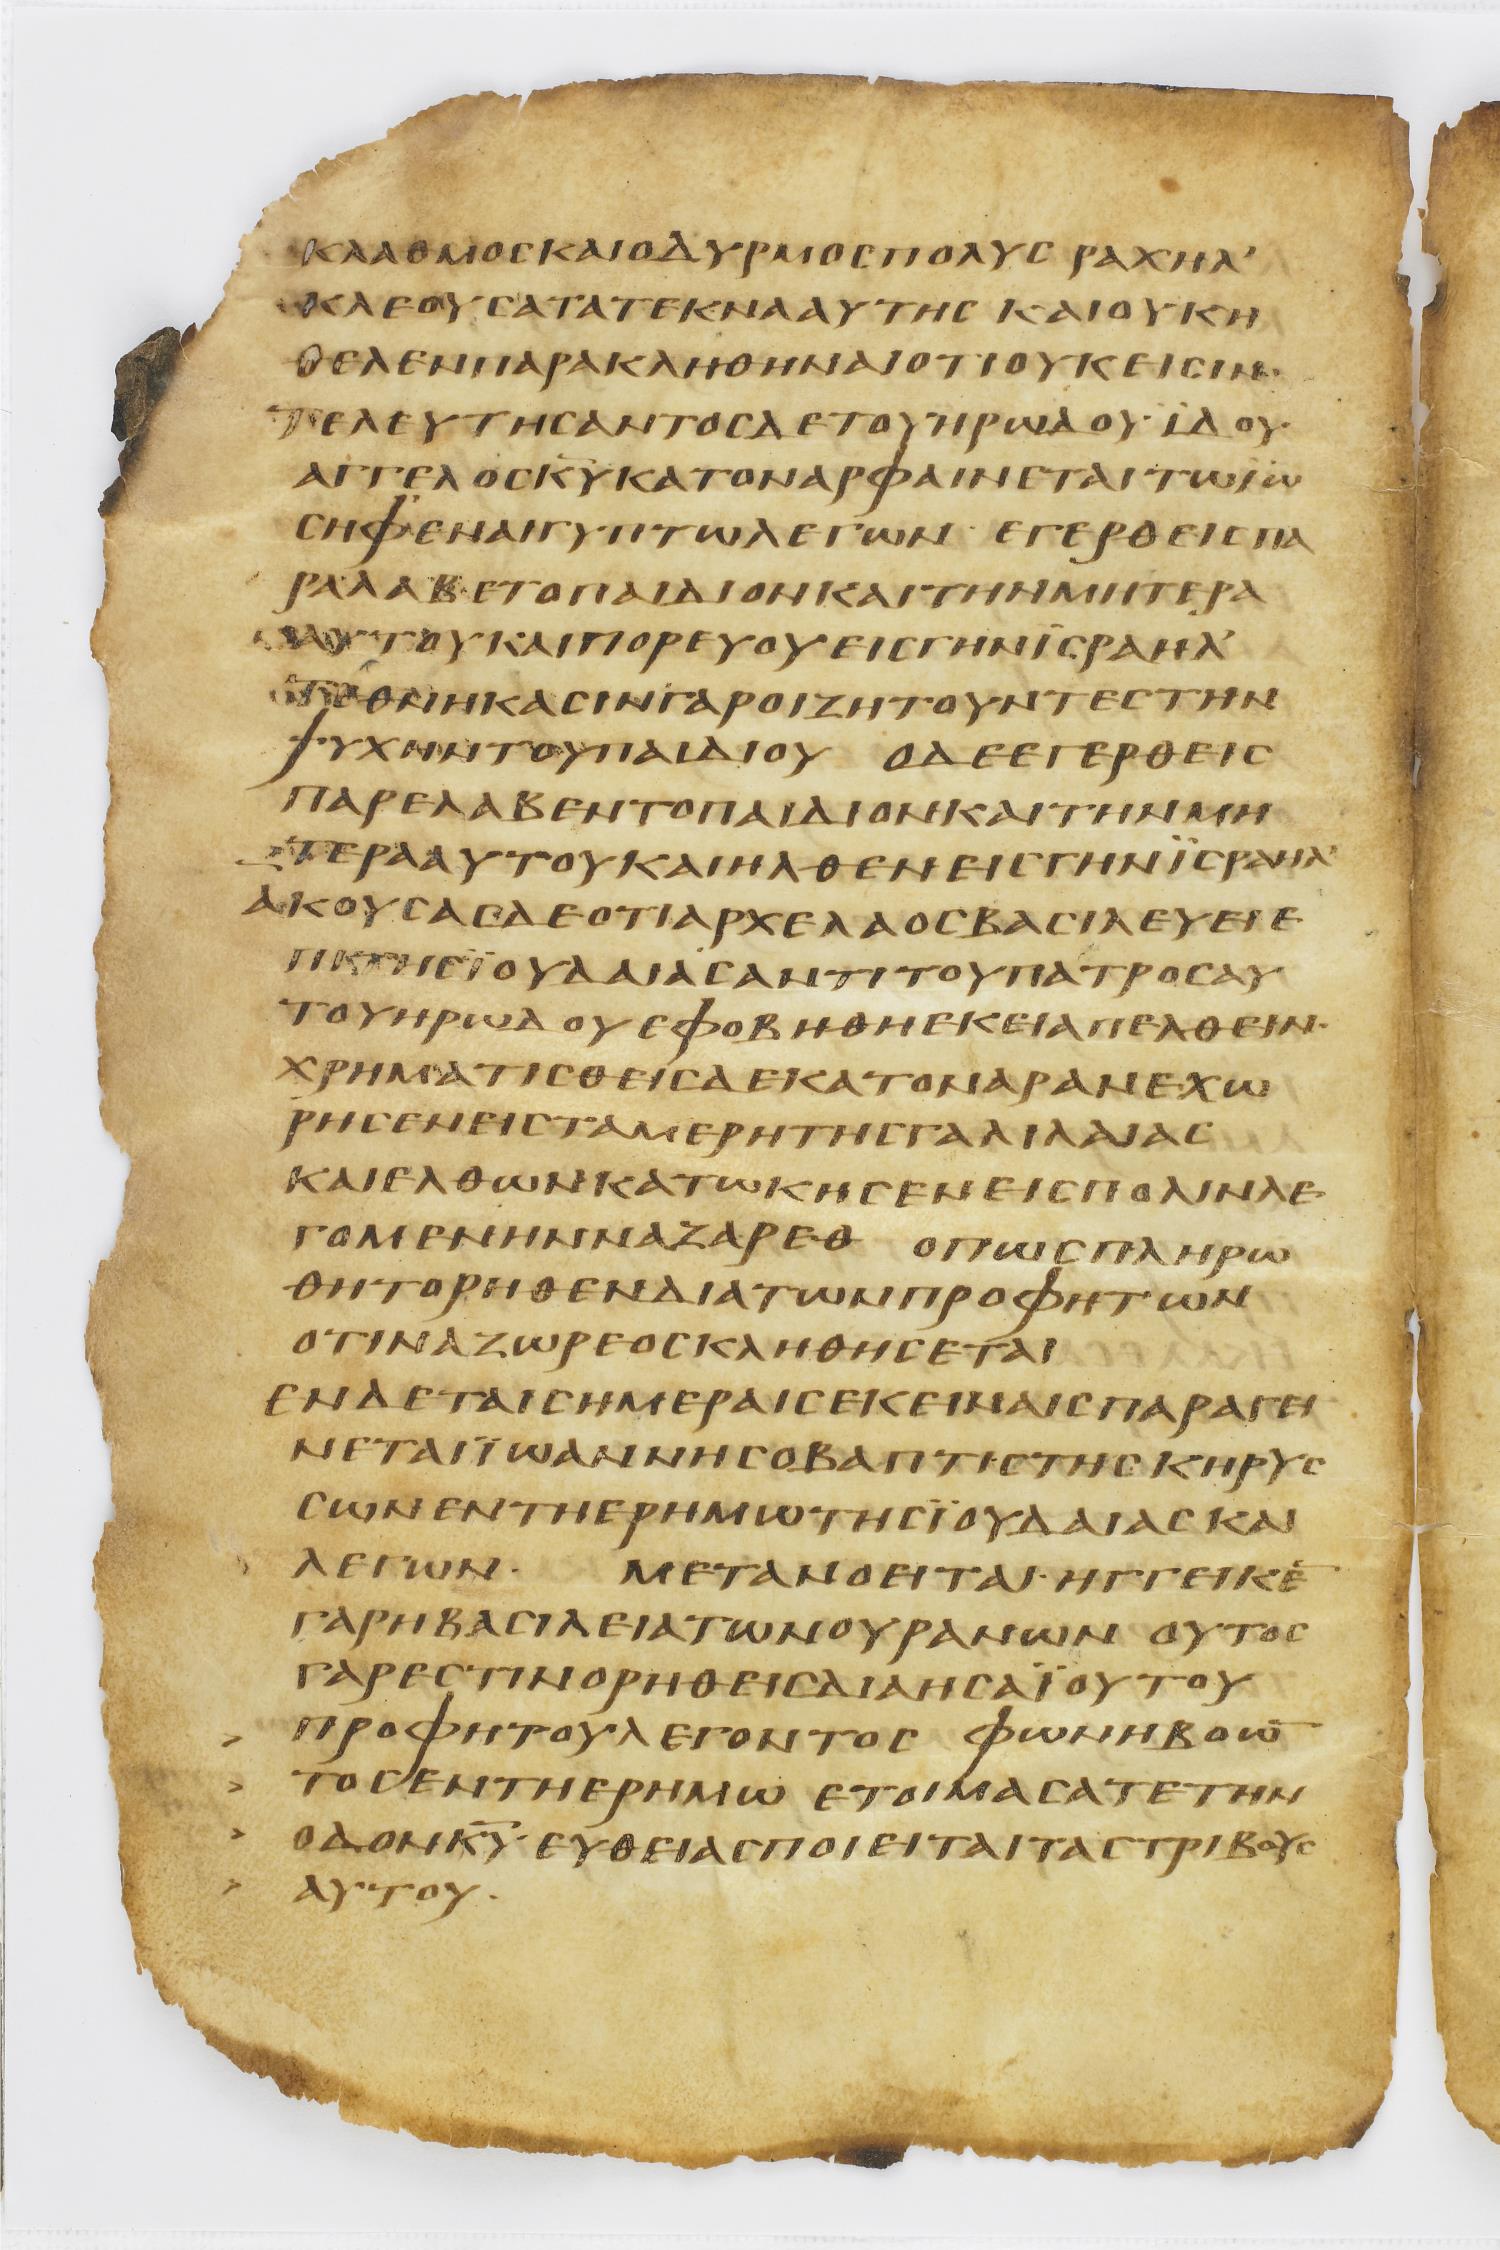 ΚΛΑΘΜΟCΚΑΙΟΔΥΡΜΟCΠΟΛΥC ΡΑΧΗΛ’
ΚΛΕΟΥCΑΤΑΤΕΚΝΑΑΥΤΗC ΚΑΙΟΥΚΗ
ΘΕΛΕΝΠΑΡΑΚΛΗΘΗΝΑΙΟΤΙΟΥΚΕΙCΙΝ·
ΤΕΛΕΥΤΗCΑΝΤΟCΔΕΤΟΥΗΡΩΔΟΥ·ΙΔΟΥ
ΑΓΓΕΛΟCΚ̅Υ̅ΚΑΤΟΝΑΡΦΑΙΝΕΤΑΙΤΩΪΩ
CΗΦ’ΕΝΑΙΓΥΠΤΩΛΕΓΩΝ· ΕΓΕΡΘΕΙCΠΑ
ΡΑΛΑΒΕΤΟΠΑΙΔΙΟΝΚΑΙΤΗΝΜΗΤΕΡΑ
ΑΥΤΟΥΚΑΙΠΟΡΕΥΟΥΕΙCΓΗΝΪCΡΑΗΛ’
ΤΕΘΝΗΚΑCΙΝΓΑΡΟΙΖΗΤΟΥΝΤΕCΤΗΝ
ΨΥΧΗΝΤΟΥΠΑΙΔΙΟΥ ΟΔΕΕΓΕΡΘΕΙC
ΠΑΡΕΛΑΒΕΝΤΟΠΑΙΔΙΟΝΚΑΙΤΗΝΜΗ
ΤΕΡΑΑΥΤΟΥΚΑΙΗΛΘΕΝΕΙCΓΗΝΪCΡΑΗΛ’
ΑΚΟΥCΑCΔΕΟΤΙΑΡΧΕΛΑΟCΒΑCΙΛΕΥΕΙΕ
ΠΙΤΗCΪΟΥΔΑΙΑCΑΝΤΙΤΟΥΠΑΤΡΟCΑΥ
ΤΟΥΗΡΩΔΟΥΕΦΟΒΗΘΗΕΚΕΙΑΠΕΛΘΕΙΝ·
ΧΡΗΜΑΤΙCΘΕΙCΔΕΚΑΤΟΝΑΡΑΝΕΧΩ
ΡΗCΕΝΕΙCΤΑΜΕΡΗΤΗCΓΑΛΙΛΑΙΑC
ΚΑΙΕΛΘΩΝΚΑΤΩΚΗCΕΝΕΙCΠΟΛΙΝΛΕ
ΓΟΜΕΝΗΝΝΑΖΑΡΕΘ ΟΠΩCΠΛΗΡΩ
ΘΗΤΟΡΗΘΕΝΔΙΑΤΩΝΠΡΟΦΗΤΩΝ
ΟΤΙΝΑΖΩΡΕΟCΚΛΗΘΗCΕΤΑΙ
ΕΝΔΕΤΑΙCΗΜΕΡΑΙCΕΚΕΙΝΑΙCΠΑΡΑΓΕΙ
ΝΕΤΑΙΪΩΑΝΝΗCΟΒΑΠΤΙCΤΗC ΚΗΡΥC
CΩΝΕΝΤΗΕΡΗΜΩΤΗCΪΟΥΔΑΙΑCΚΑΙ
ΛΕΓΩΝ· ΜΕΤΑΝΟΕΙΤΑΙ·ΗΓΓΕΙΚΕ̅
ΓΑΡΗΒΑCΙΛΕΙΑΤΩΝΟΥΡΑΝΩΝ ΟΥΤΟC
ΓΑΡΕCΤΙΝΟΡΗΘΕΙCΔΙΑΗCΑΪΟΥΤΟΥ
> ΠΡΟΦΗΤΟΥΛΕΓΟΝΤΟC ΦΩΝΗΒΟΩ̅
> ΤΟCΕΝΤΗΕΡΗΜΩ ΕΤΟΙΜΑCΑΤΕΤΗΝ
> ΟΔΟΝΚ̅Υ̅·ΕΥΘΕΙΑCΠΟΙΕΙΤΑΙΤΑCΤΡΙΒΟΥC
> ΑΥΤΟΥ·